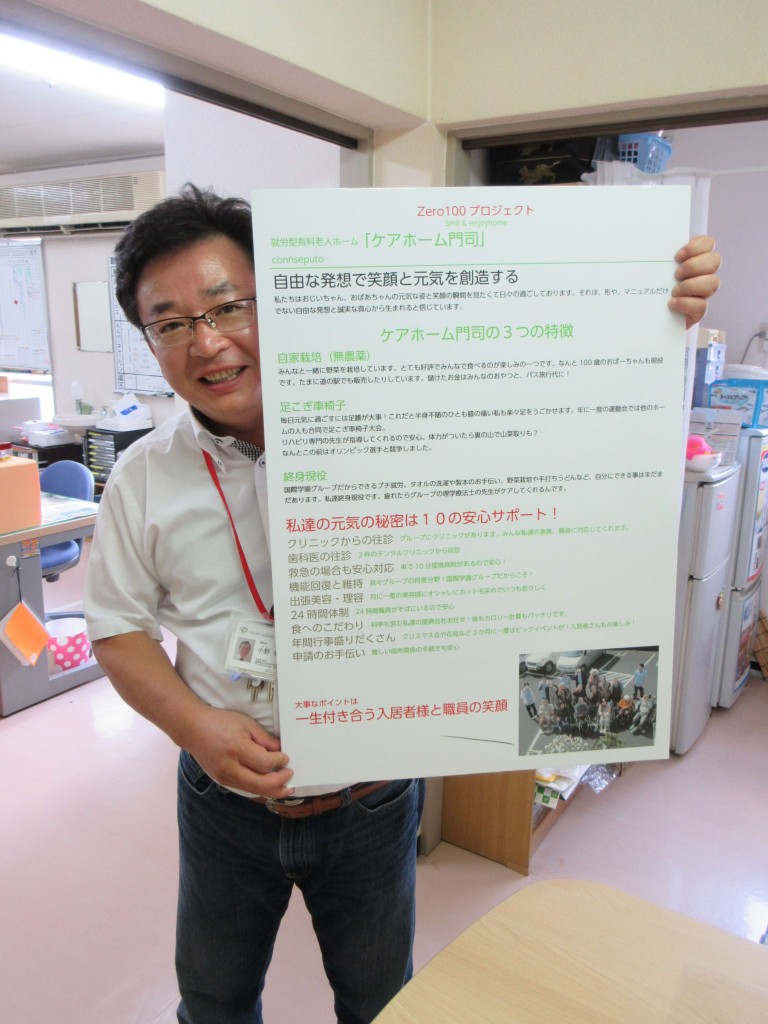 Zero100 プロジェクト
Smil & enjoyhome
就労型有料老人ホーム「ケアホーム門司」
connseputo
自由な発想で笑顔と元気を創造する
私たちはおじいちゃん、おばあちゃんの元気な姿と笑顔の瞬間を見たくて日々の過ごしております。それは、形や、マニュアルだけ
でない自由な発想と誠実な真心から生まれると信じています。
ケアホーム門司の３つの特徴
自家栽培（無農薬）
みんなと一緒に野菜を栽培しています。とても好評でみんなで食べるのが楽しみの一つです。なんと 100 歳のおばーちゃんも現役
です。たまに道の駅でも販売したりしています。儲けたお金はみんなのおやつと、バス旅行代に！
足こぎ車椅子
毎日元気に過ごすには足腰が大事！これだと半身不随のひとも膝の痛い私も楽々足をうごかせます。年に一度の運動会では他のホー
ムの人も合同で足こぎ車椅子大会。
リハビリ専門の先生が指導してくれるので安心。体力がついたら裏の山で山菜取りも？
なんとこの前はオリンピック選手と競争しました。
終身現役
国際学園グループだからできるプチ就労。タオルの洗濯や製本のお手伝い、野菜栽培や手打ちうどんなど、自分にできる事はまだま
だあります。私達終身現役です。疲れたらグループの理学療法士の先生がケアしてくれるんです。
私達の元気の秘密は１０の安心サポート！
クリニックからの往診 グループにクリニックがあります。みんな私達の家族、職員に対応してくれます。
歯科医の往診 2 件のデンタルクリニックから往診
救急の場合も安心対応 車で 10 分提携病院があるので安心！
機能回復と維持 我々グループの得意分野！国際学園グループだからこそ！
出張美容・理容 月に一度の美容師にオシャレにカットも染めていつも若々しく
24 時間体制 24 時間職員がそばにいるので安心
食へのこだわり 料亭も営む私達の提携会社お任せ！味もカロリー計算もバッチリです。
年間行事盛りだくさん クリスマス会や花見など 2 か月に一度はビッグイベントが！入居者さんもお楽しみ！
申請のお手伝い 難しい役所関係の手続きも安心
大事なポイントは
一生付き合う入居者様と職員の笑顔